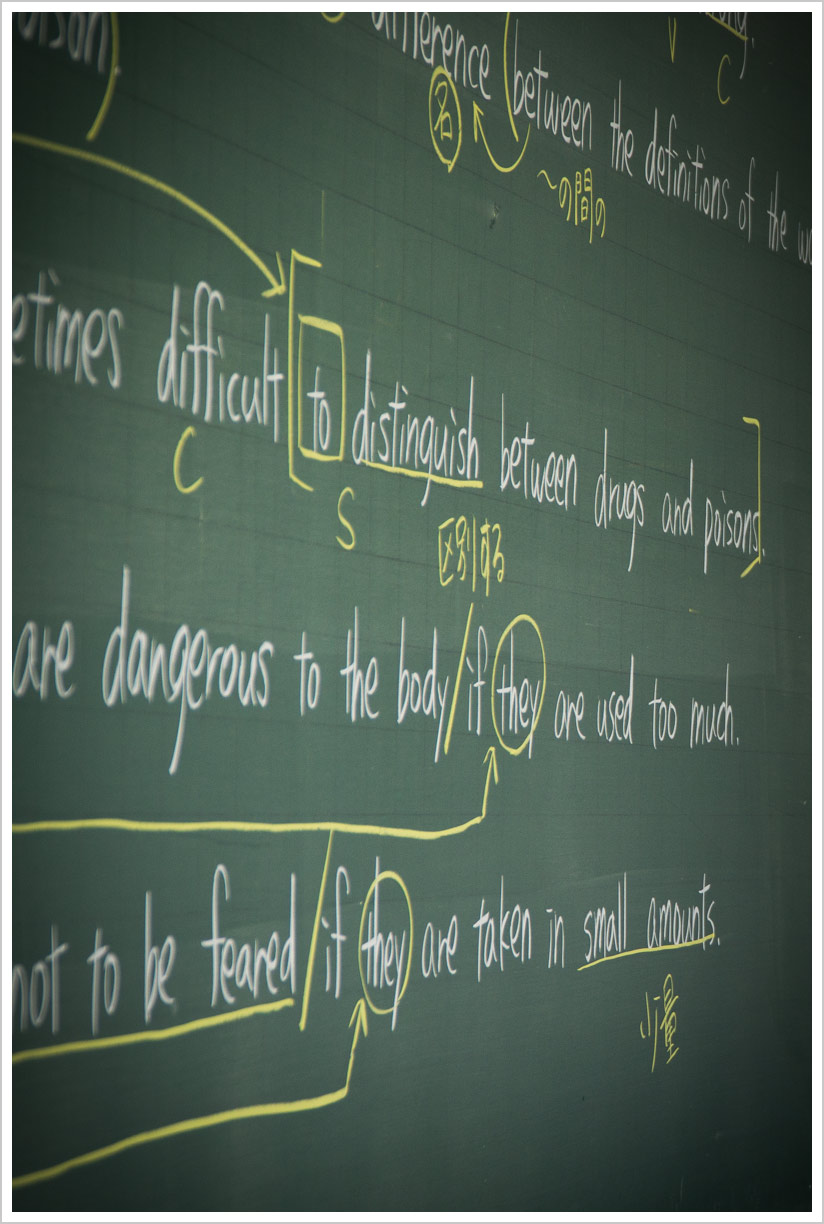 difference (between the definitions of the
V
C
名
〜の間の
difficult [to distinguish between drugs and poisons].
C
S
区別する
are dangerous to the body / if they are used too much.
not to be feared / if they are taken in small amounts.
少量